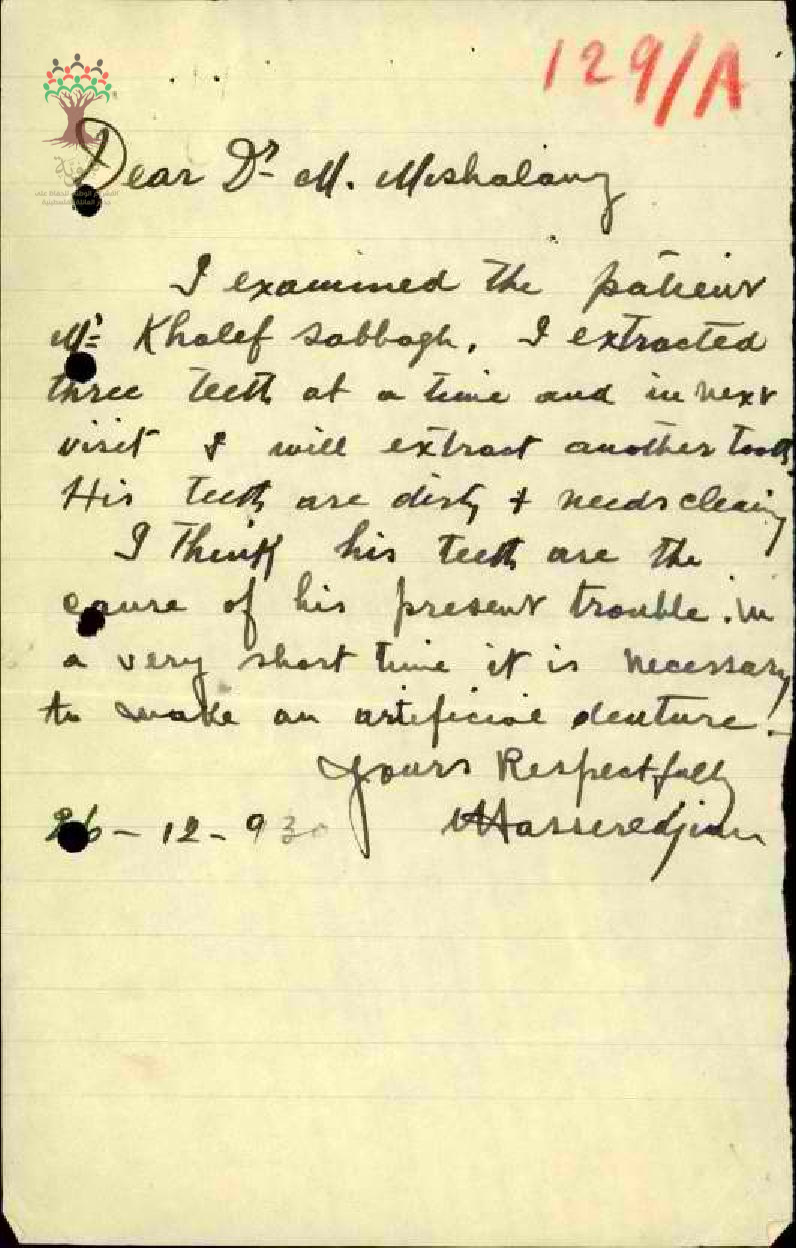 129/A
Dear Dr. M. Mishalany
I examined the patient
Mr. Khalef Sabbagh. I extracted
three teeth at a time and in next
visit I will extract another tooth.
His teeth are dirty + needs cleaing
I Think his teeth are the
cause of his present trouble. in
a very short time it is necessary
to make an artificial denture.
Yours Respectfully
26 - 12 - 930